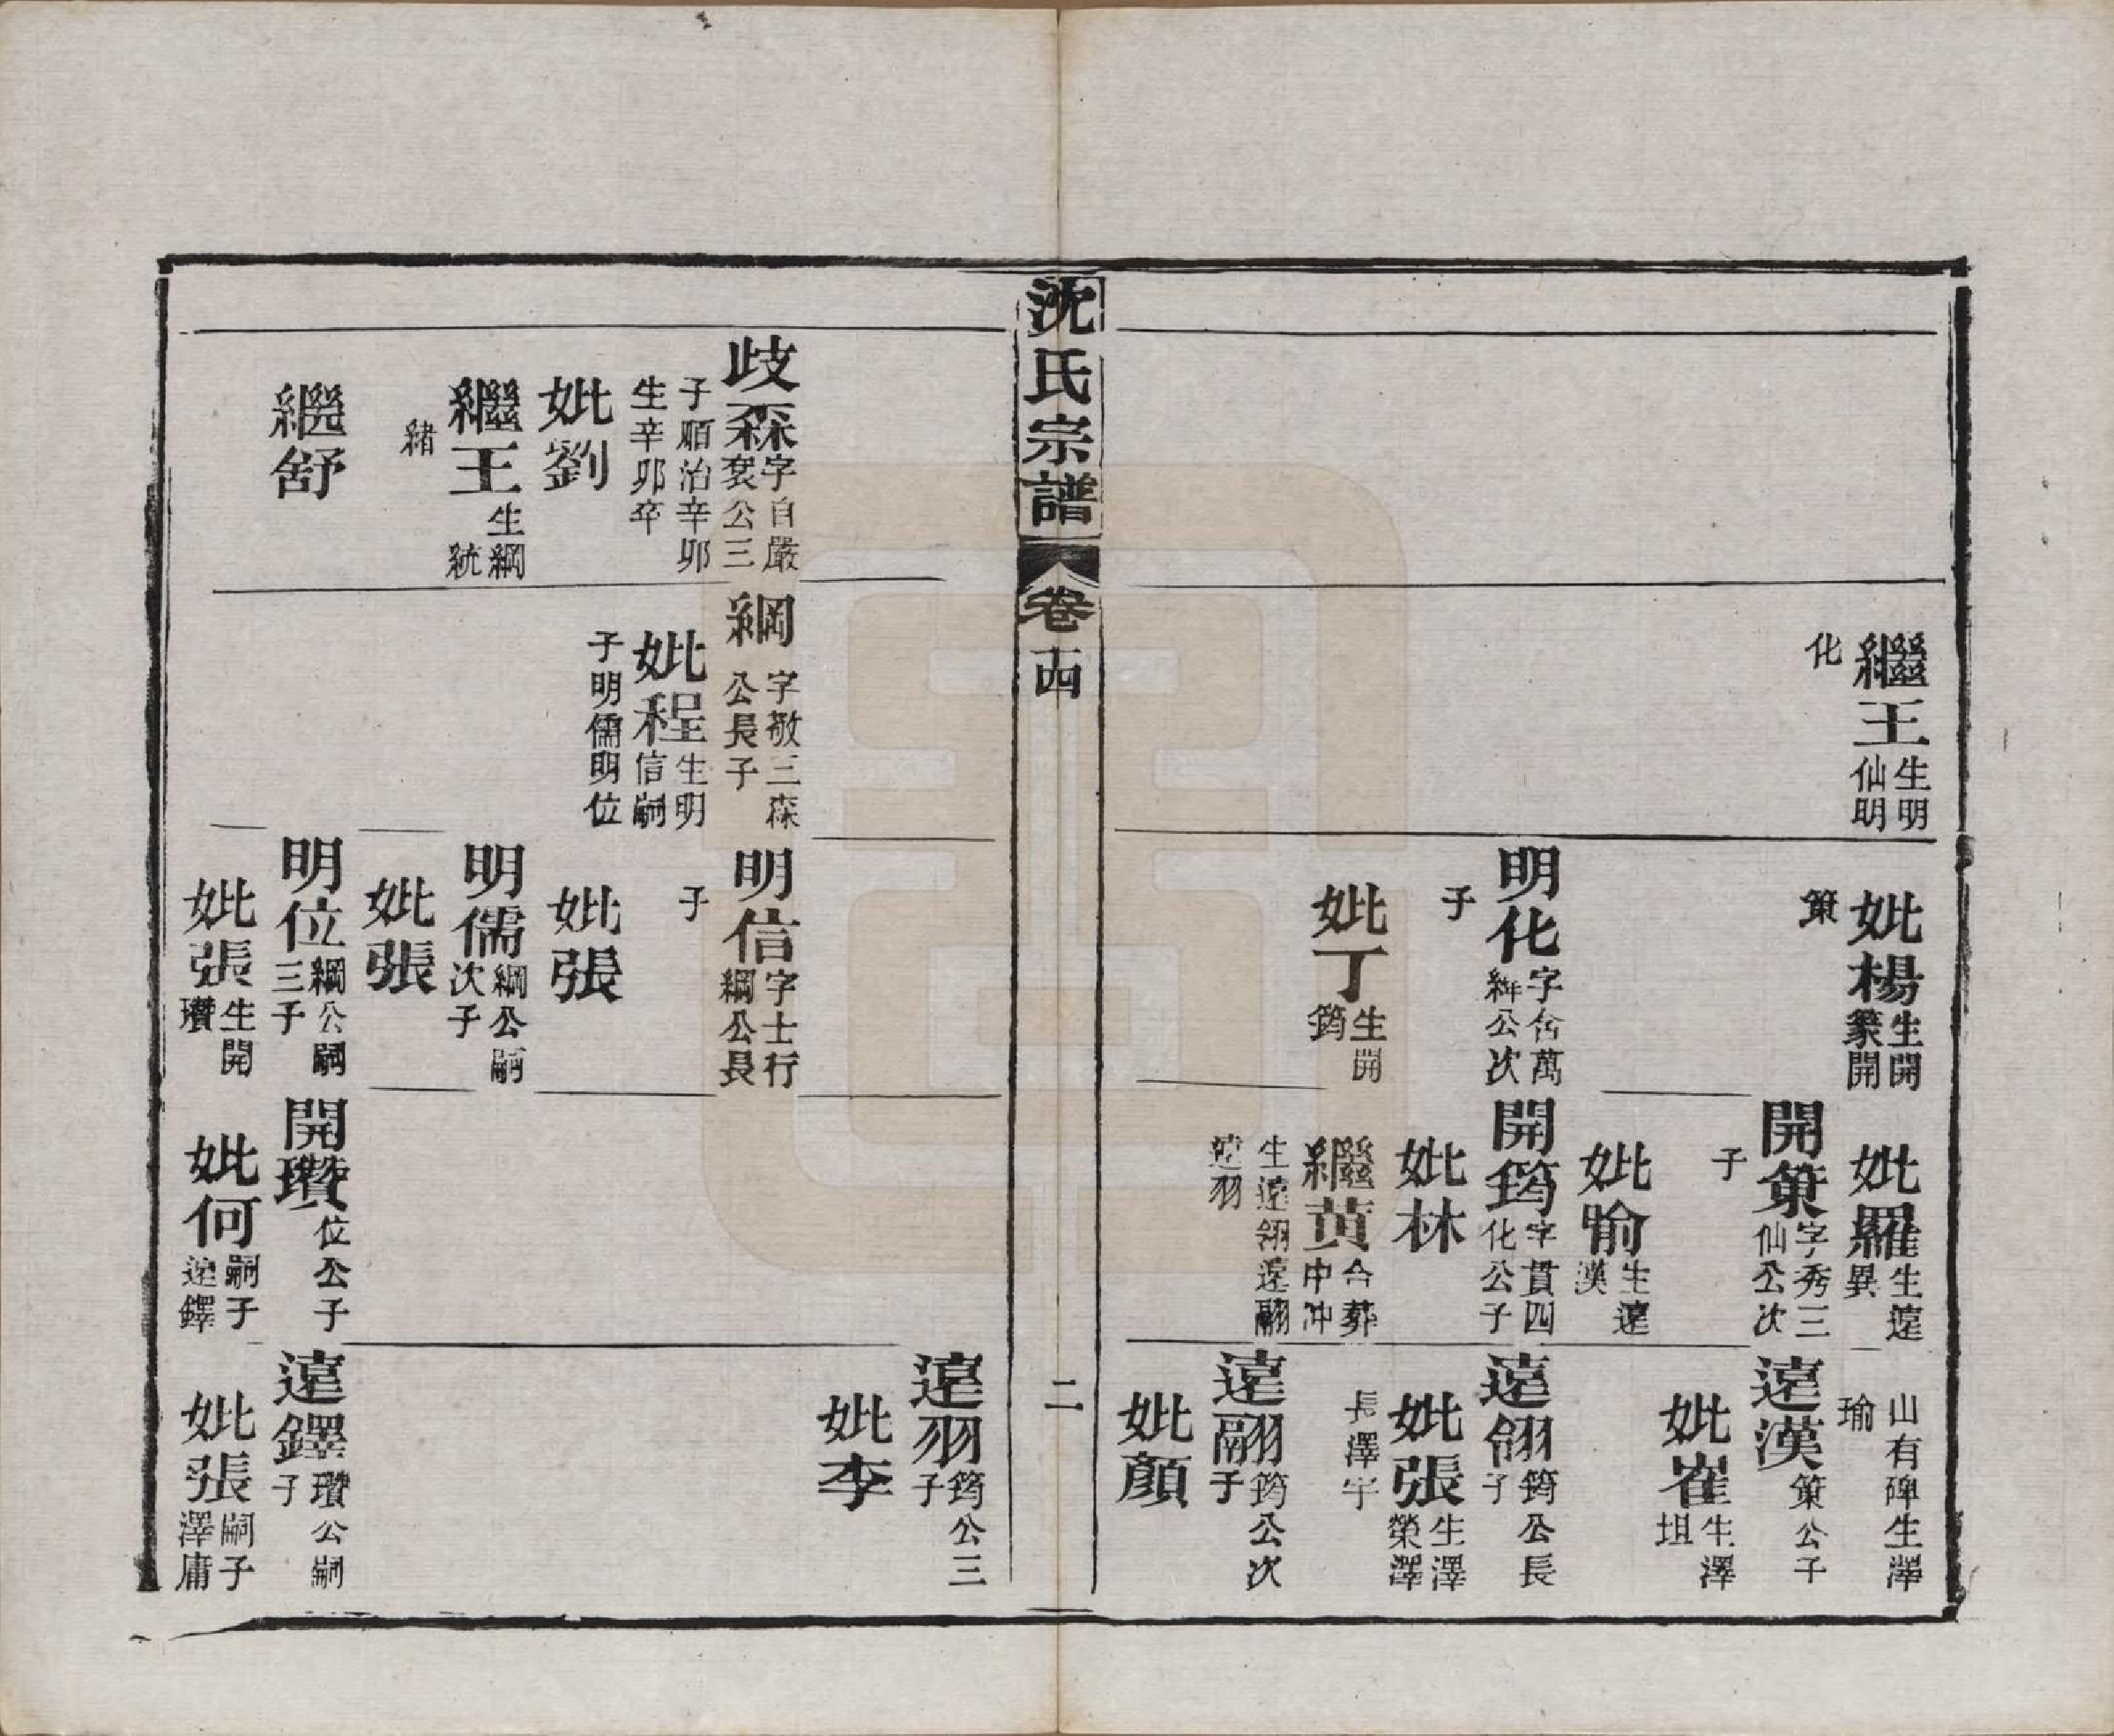 繼王生明仙明
化
妣楊生開篆開
策
明化字含萬縡公次
子
妣丁生開筠
妣羅生遠異
開策字秀三仙公次
子
妣喻生遠漢
開筠字貫四化公子
妣林
繼黃合葬中冲
生遠翎遠翮
遠羽
山有碑生澤
瑜
遠漢策公子
妣崔生澤坦
遠翎筠公長子
妣張生澤榮澤
長澤宇
遠翮筠公次子
妣顏
沈氏宗譜
卷十四
二
歧森字自嚴袞公三
子順治辛卯
生辛卯卒
妣劉
繼王生綱統
緒
繼舒
綱字敬三森公長子
妣程生明信嗣
子明儒明位
明信字士行綱公長
子
妣張
明儒綱公嗣次子
妣張
明位綱公嗣三子
妣張生開瓚
開瓚位公子
妣何嗣子遠鐸
遠羽筠公三子
妣李
遠鐸瓚公嗣子
妣張嗣子澤庸